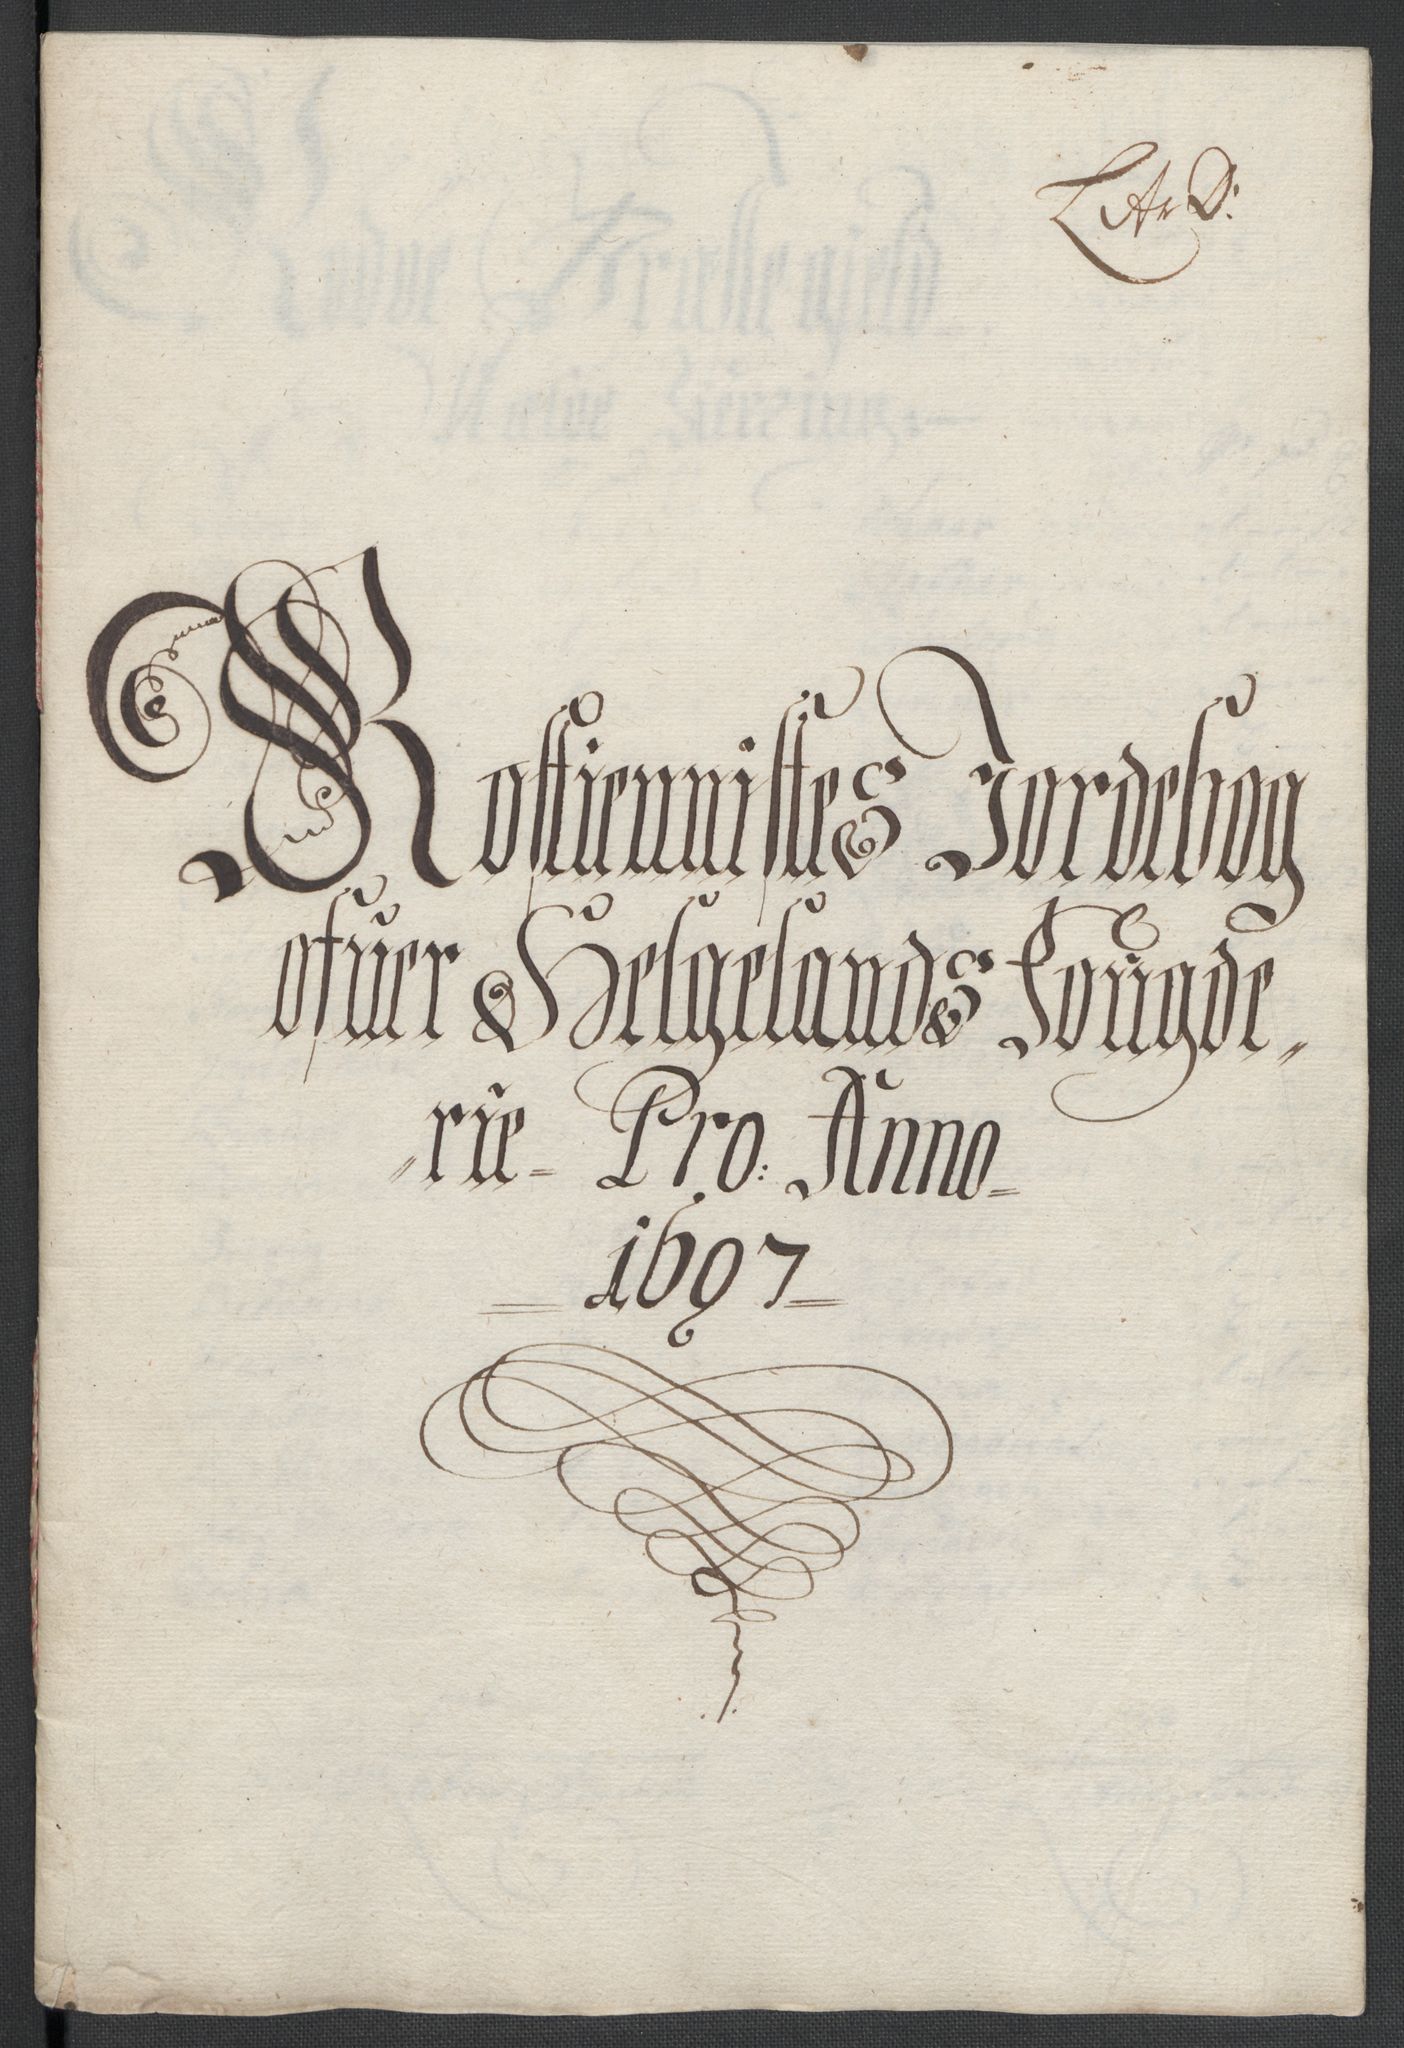 Litr D:
Rostiennistes Jordebog
ofuer Helgelands Fougde,,
„rie- Pro: Anno-
1697